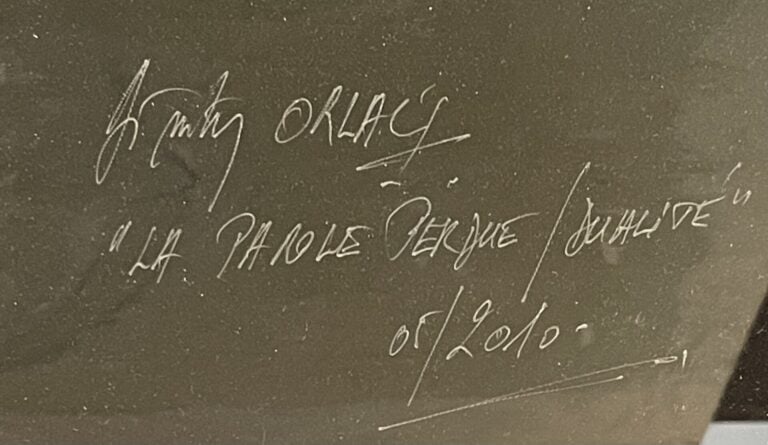 Dimitry ORLAC
"LA PAROLE PERDUE / DUALITÉ"
05/2010.